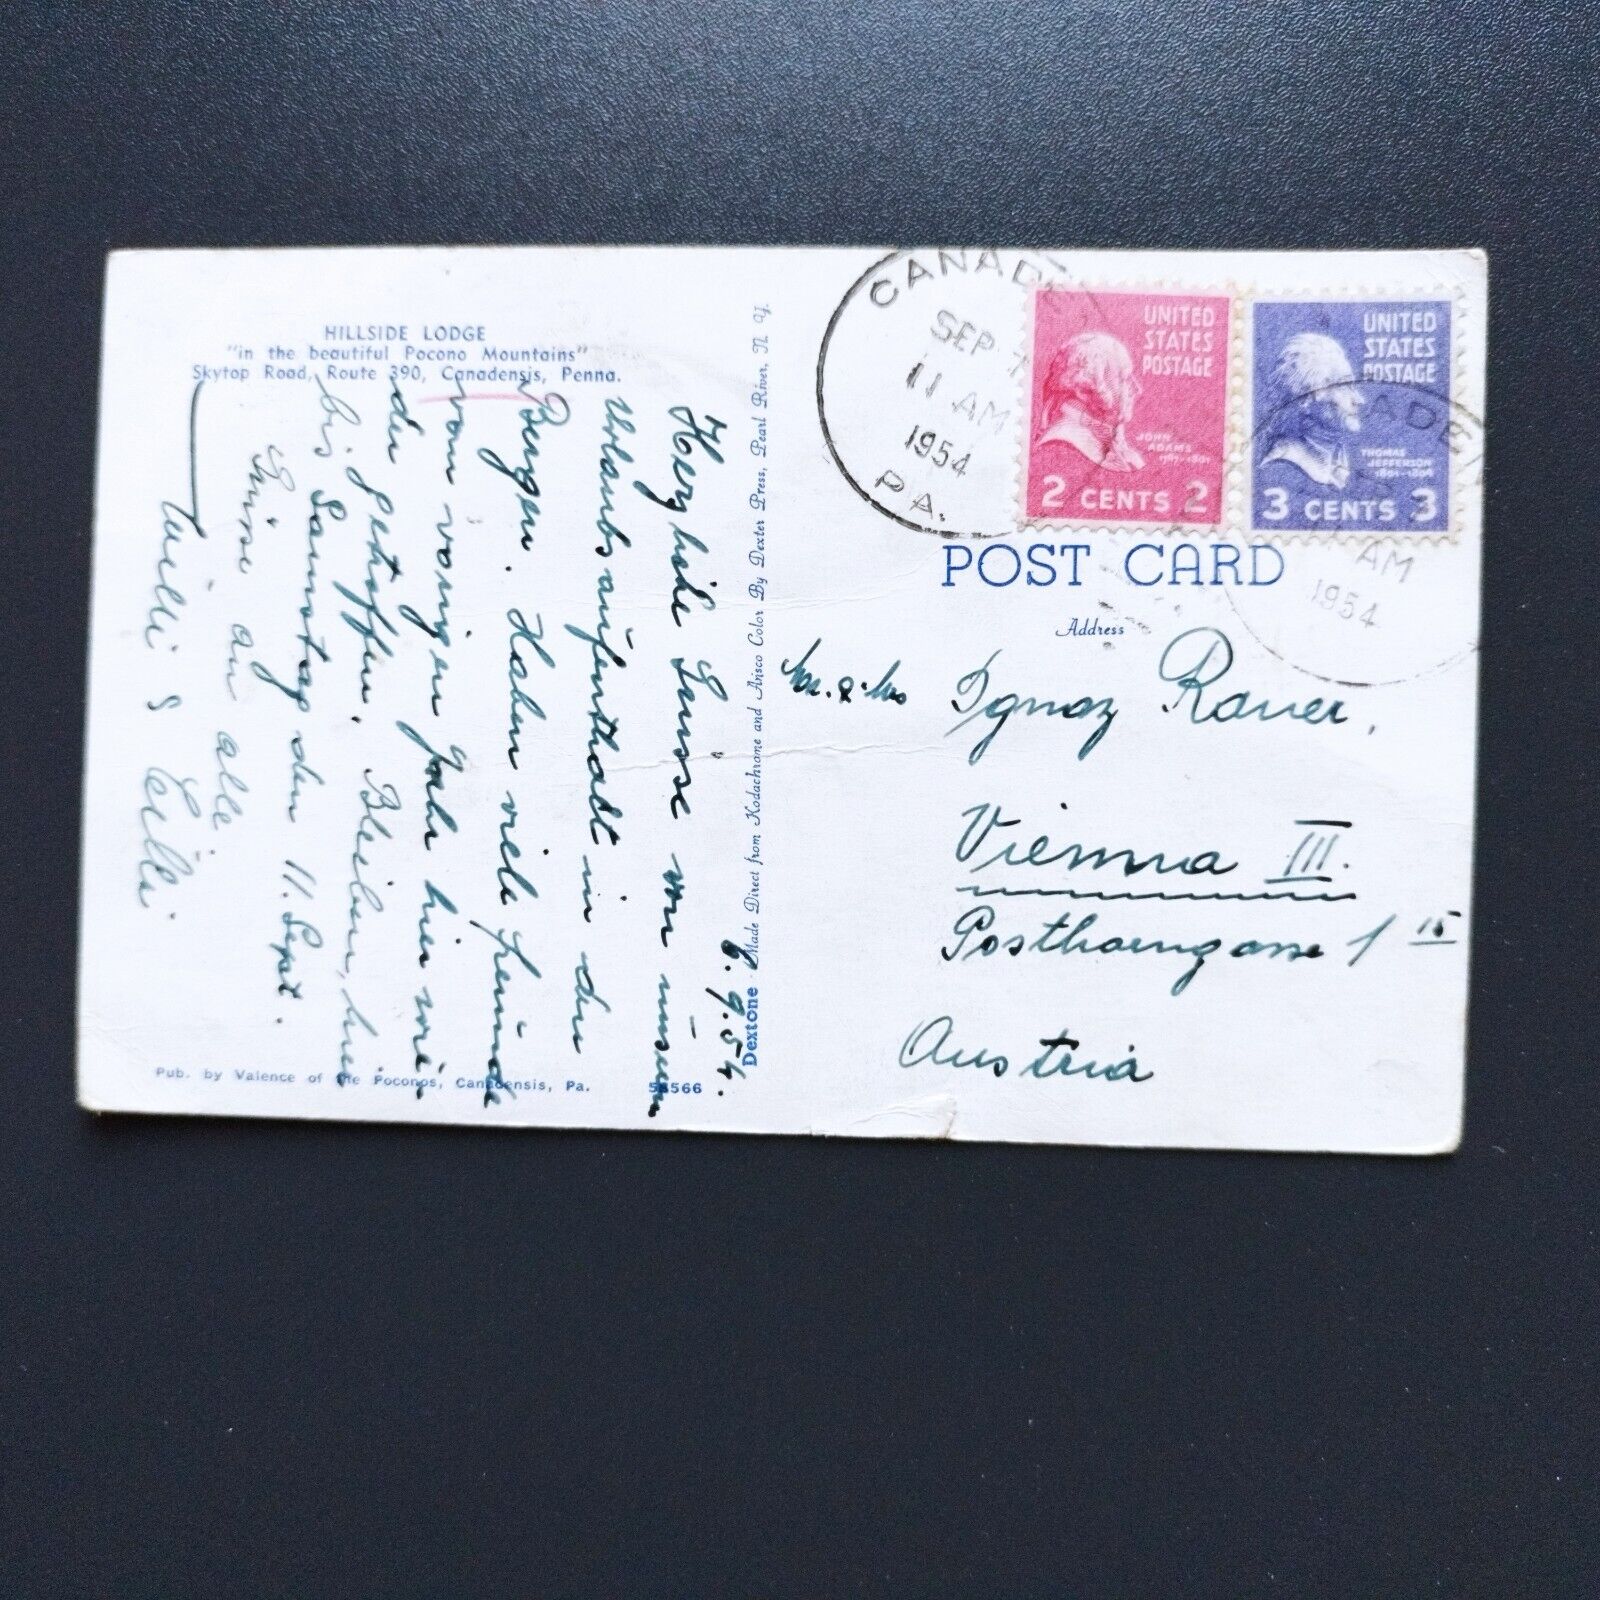 HILLSIDE LODGE
"in the beautiful Pocono Mountains"
Skytop Road, Route 390, Canadensis, Penna.
6.9.54.
Herzliche Grüsse von unserem
Urlaubsaufenthalt in den
Bergen. Haben viele Freunde
vom vorigen Jahr hier wie
der getroffen. Bleiben hier
bis Samstag den 11. Sept.
Grüsse an alle
Willi & Cilli
Pub. by Valence of the Poconos, Canadensis, Pa.
566
Dextone Made Direct from Kodachrome and Ansco Color By Dexter Press, Pearl River, N. Y.
CANADE
SEP 7
11 AM
1954
PA.
UNITED
STATES
POSTAGE
JOHN
ADAMS
1797-1801
2 CENTS 2
UNITED
STATES
POSTAGE
THOMAS
JEFFERSON
1801-1809
3 CENTS 3
NADE
AM
1954
POST CARD
Address
Mr. & Mrs
Ignaz Rauer,
Vienna III.
Posthorngasse 1
Austria